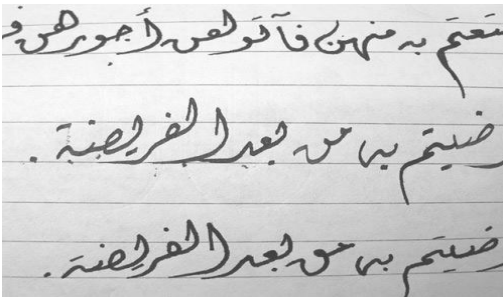 متعتم به منهن فآتوهن أجورهن
رضيتم به من بعد الفريضة .
رضيتم به من بعد الفريضة .